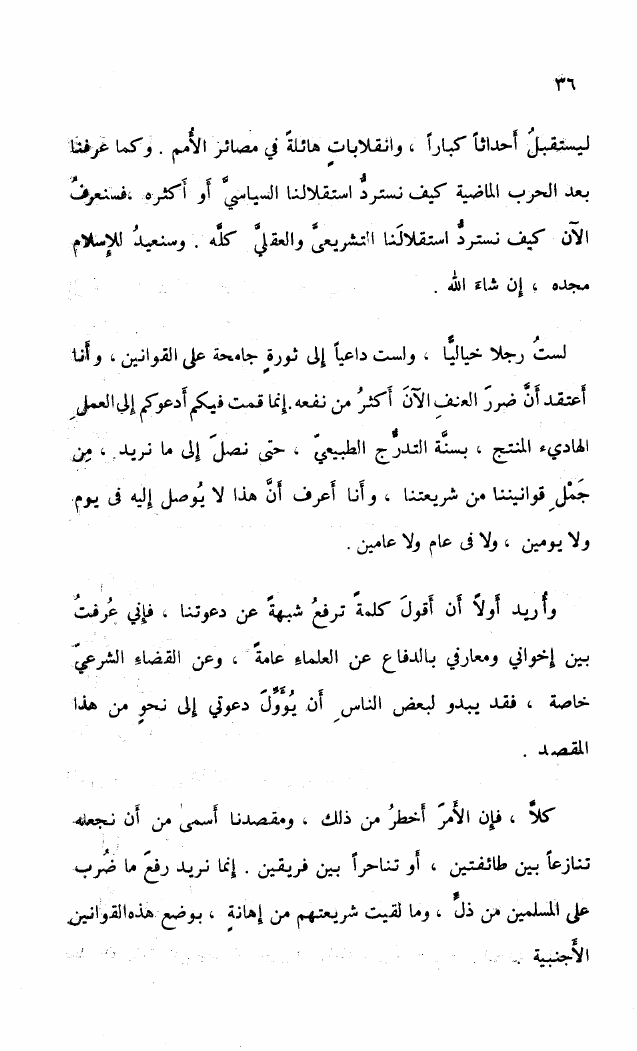 ٣٦
ليستقبلُ أحداثاً كباراً ، وانقلاباتٍ هائلةً في مصائر الأُمم . وكما عرفنا
بعد الحرب الماضية كيف نستردُّ استقلالنا السياسيَّ أو أكثره ، فسنعرفُ
الآن كيف نستردُّ استقلالَنا التشريعىَّ والعقليَّ كلَّه . وسنعيدُ للإسلام
مجده ، إن شاء الله .
لستُ رجلا خياليًّا ، ولست داعياً إلى ثورةٍ جامحة على القوانين ، وأنا
أعتقد أنَّ ضررَ العنفِ الآنَ أكثرُ من نفعه . إنما قمت فيكم أدعوكم إلى العملِ
الهادىء المنتج ، بسنَّة التدرُّج الطبيعيّ ، حتى نصلَ إلى ما نريد ، مِن
جَمْلِ قوانيننا من شريعتنا ، وأنا أعرف أنَّ هذا لا يُوصل إليه فى يوم
ولا يومين ، ولا فى عام ولا عامين .
وأُريد أولاً أن أقولَ كلمةً ترفعُ شبهةً عن دعوتنا ، فإني عُرفتُ
بين إخواني ومعارفي بالدفاع عن العلماء عامةً ، وعن القضاء الشرعيّ
خاصة ، فقد يبدو لبعض الناسِ أن يُؤَوِّلَ دعوتي إلى نحوٍ من هذا
المقصد .
كلاَّ ، فإن الأمرَ أخطرُ من ذلك ، ومقصدنا أسمى من أن نجعله
تنازعاً بين طائفتين ، أو تناحراً بين فريقين . إنما نريد رفعَ ما ضُرب
على المسلمين من ذلٍّ ، وما لقيت شريعتهم من إهانةٍ ، بوضع هذه القوانين
الأجنبية .